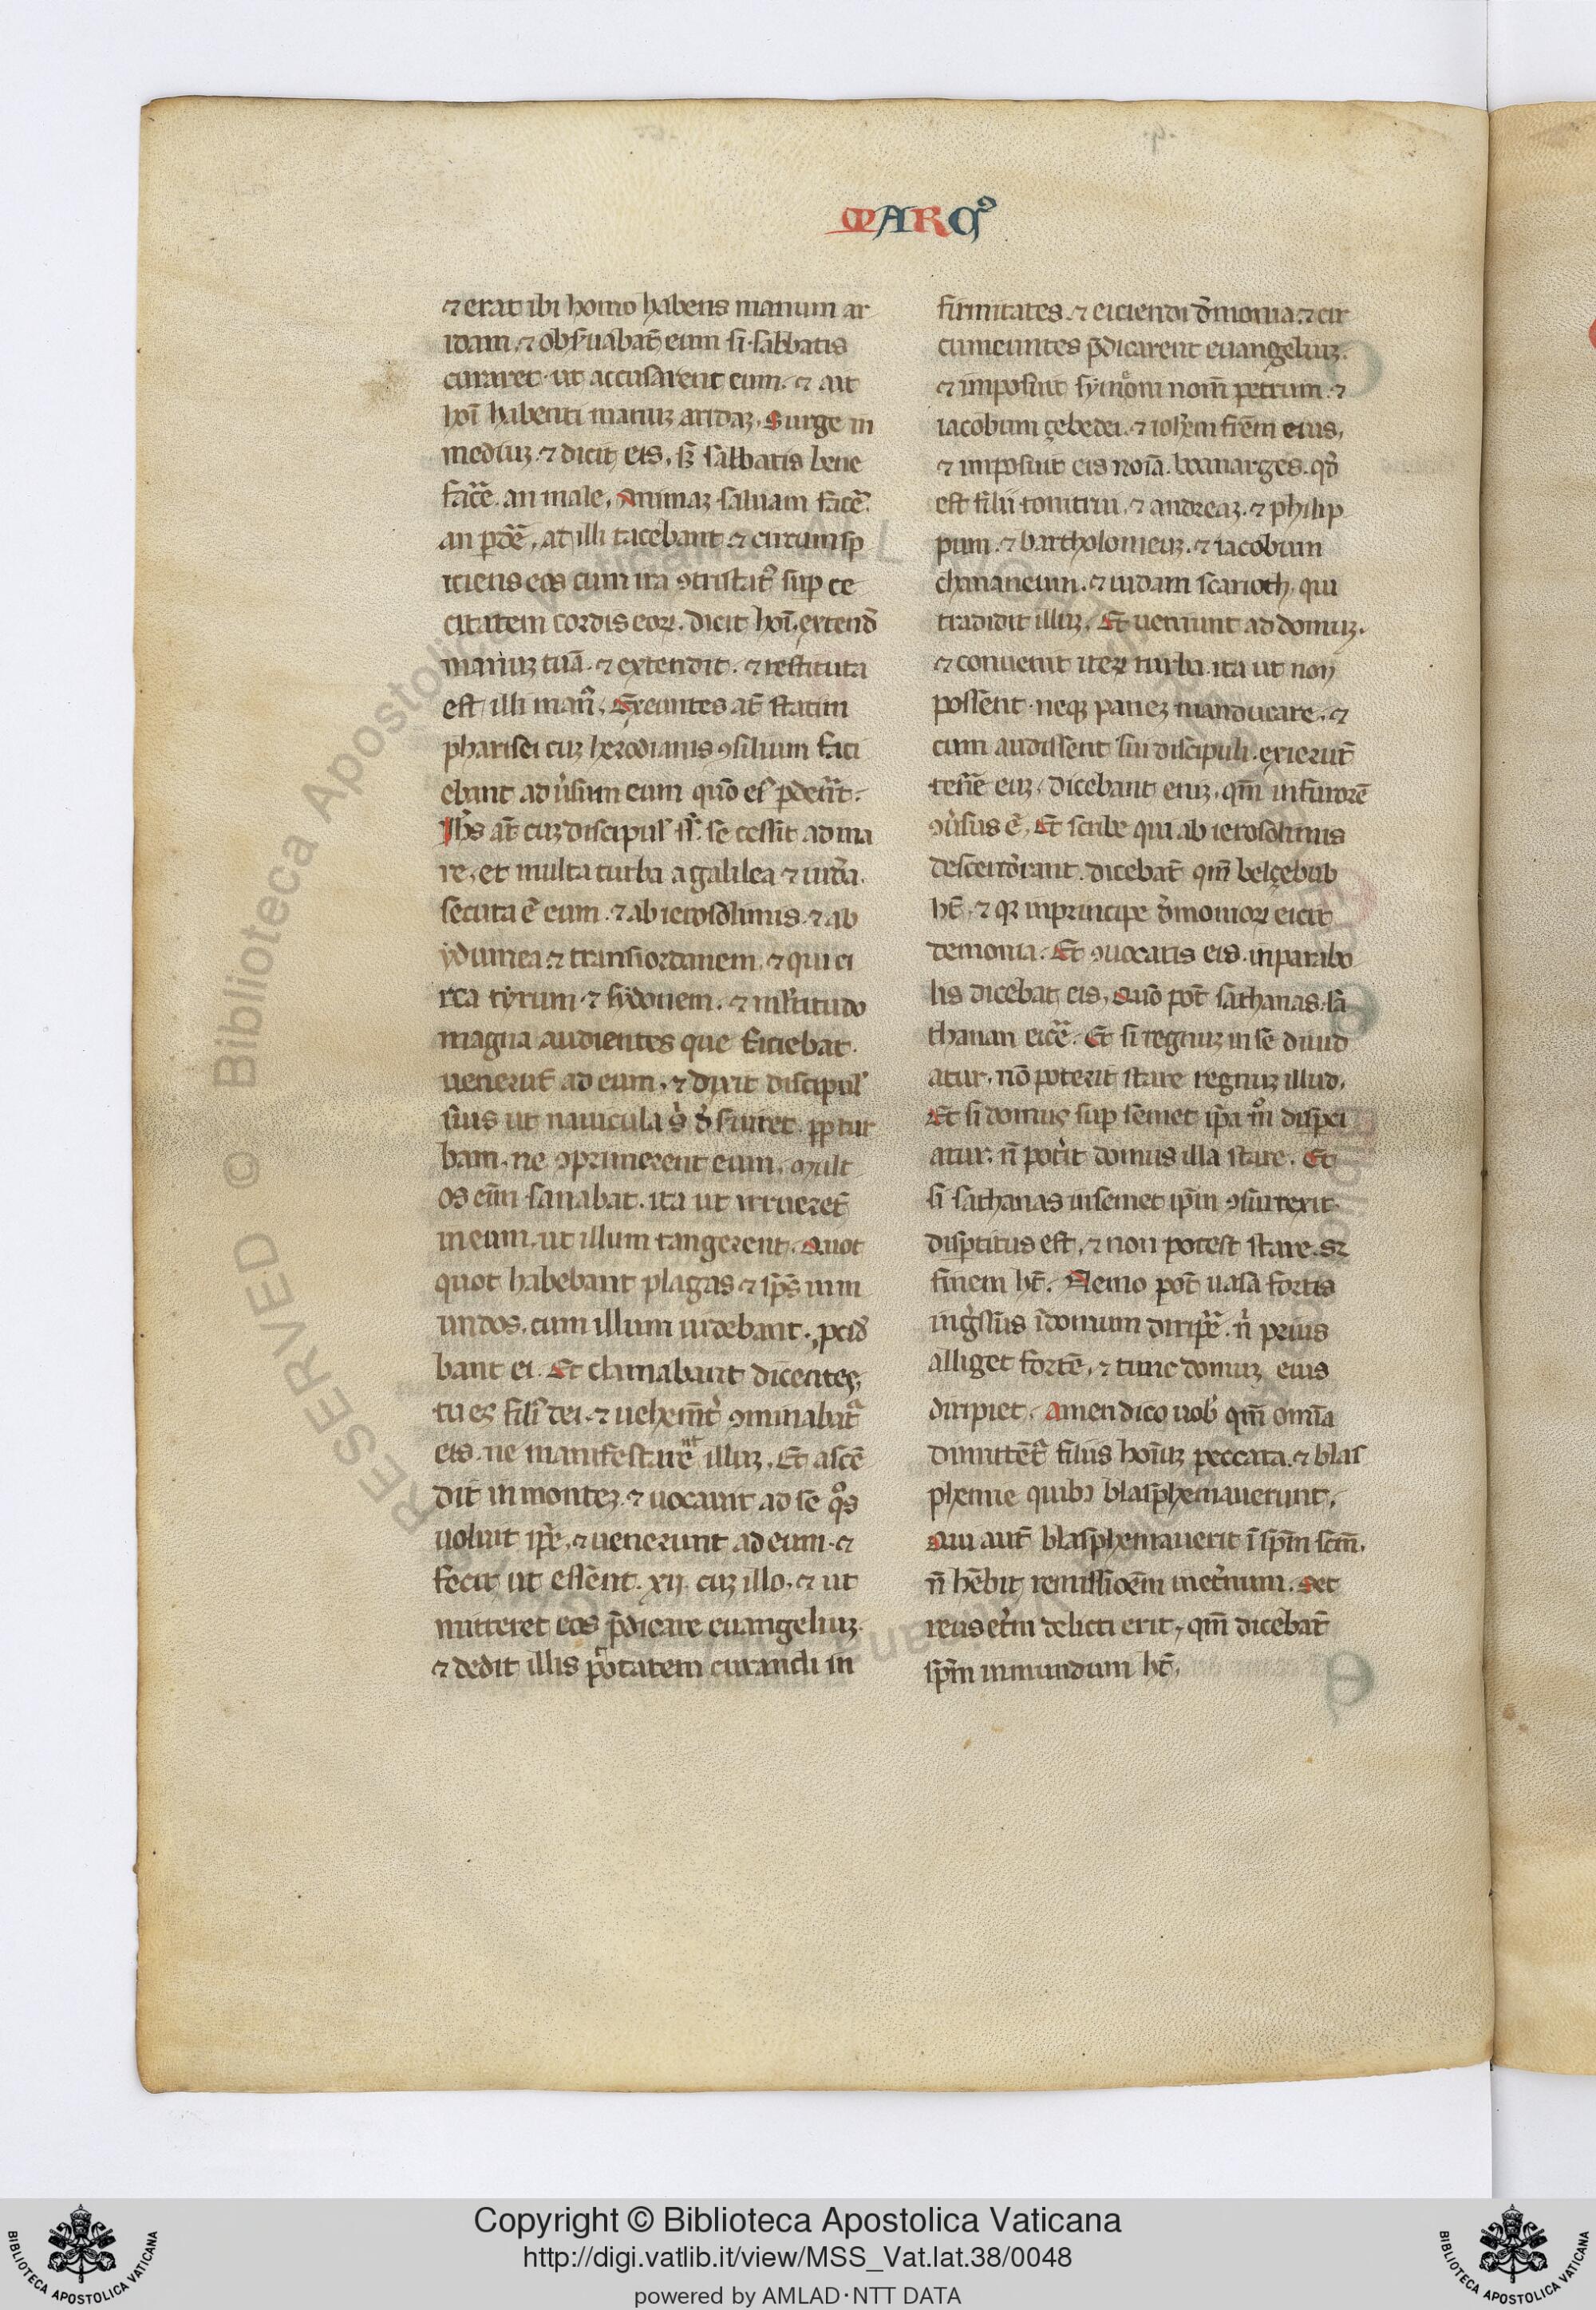 MARCꝰ
⁊ erat ibi homo habens manum ar
idam. ⁊ obẜuabāt eum si sabbatis
curaret. ut accusarent eum. ⁊ ait
hoī habenti manuʒ aridaʒ. Surge in
mediuʒ. ⁊ dicit eis. sʒ sabbatis bene
fac̄e. an male. Animaʒ saluam fac̄e.
an ꝑdē. at illi tacebant. ⁊ circumsp
iciens eos cum ira ꝯtristatꝰ suꝑ ce
citatem cordis eoꝝ. dicit hoī. extend̄
manuʒ tuā. ⁊ extendit. ⁊ restituta
est illi manꝰ. Exeuntes at̄ statim
pharisei cuʒ herodianis ꝯsilium faci
ebant aduͥsum eum quō eū ꝑderēt.
Ihs̄ at̄ cuʒ discipul' s. secessit ad ma
re. et multa turba a galilea ⁊ iudͣa.
secuta ē eum. ⁊ ab ierosolimis. ⁊ ab
ydumea ⁊ transiordanem. ⁊ qui ci
rca tyrum ⁊ sydonem. ⁊ mltitudo
magna audientes que faciebat.
uenerūt ad eum. ⁊ dixit discipul'
suis ut nauicula sͥ dẜuiret. ꝓp tur
bam. ne ꝯprimerent eum. Mult
os eni̅ sanabat. ita ut irruerēt
in eum. ut illum tangerent. Quot
quot habebant plagas ⁊ sp̄s inm
undos. cum illum uidebant. ꝓcid̄
bant ei. Et clamabant dicentes.
tu es filiꝰ dei. ⁊ uehem̄tͥ ꝯminabatͣ
eis. ne manifestarēt illuʒ. Et ascē
dit in monteʒ. ⁊ uocauit ad se qͦs
uoluit ip̄e. ⁊ uenerunt ad eum. ⁊
fecit ut essent. xij. cuʒ illo. ⁊ ut
mitteret eos p̄dicare euangeliuʒ.
⁊ dedit illis p̄otatem curandi in
firmitates. ⁊ eiciendi d̄monia. ⁊ cir
cumeuntes p̄dicarent euangeliuʒ.
⁊ imposuit symoni nom̄ petrum. ⁊
iacobum çebedei. ⁊ ioh̄em fr̄em eius.
⁊ imposuit eis noīa. boanarges. qd̄
est filii tonitrui. ⁊ andreaʒ. ⁊ philip
pum. ⁊ bartholomeuʒ. ⁊ iacobum
chananeum. ⁊ iudam scarioth. qui
tradidit illuʒ. Et ueniunt ad domuʒ.
⁊ conuenit iteꝝ turba. ita ut non
possent. neqʒ paneʒ manducare. ⁊
cum audissent sui discipuli. exierūt
tenē euʒ. dicebant eniʒ. qm̄ in furorē
ꝯuͥsus ē. Et scribe qui ab ierosolimis
descenderant. dicebāt qm̄ belçebub
ht̄. ⁊ qꝛ in principe d̄monioꝝ eicit
demonia. Et ꝯuocatis eis. in parabo
lis dicebat eis. Quō pot̄ sathanas. sa
thanan eicē. Et si regnuʒ in se diuid
atur. nō poterit stare regnuʒ illud.
Et si domus suꝑ semet ip̄a m̊ dispci
atur. n̄ pot̄it domus illa stare. Et
si sathanas in semet ip̄m ꝯsurrexit.
disꝑtitus est. ⁊ non potest stare. sʒ
finem ht̄. Nemo pot̄ uasa fortis
ingͥssus ī domum diripe̅. nͥ prius
alliget fortē. ⁊ tunc domuʒ eius
diripiet. Amen dico uob' qm̄ omīa
dimittēt filiis hoīuʒ peccata. ⁊ blas
phemie quibꝫ blasphemauerunt.
Qui aut̄ blasphemauerit ī sp̄m scm̄.
n̄ hēbit remissioēm inet̄num. Set
reus et̄ni delicti erit. qm̄ dicebāt
sp̄m inmundum ht̄.
RESERVED © Biblioteca Apostolica Vaticana
Copyright © Biblioteca Apostolica Vaticana
http://digi.vatlib.it/view/MSS_Vat.lat.38/0048
powered by AMLAD·NTT DATA
BIBLIOTECA APOSTOLICA VATICANA
BIBLIOTECA APOSTOLICA VATICANA